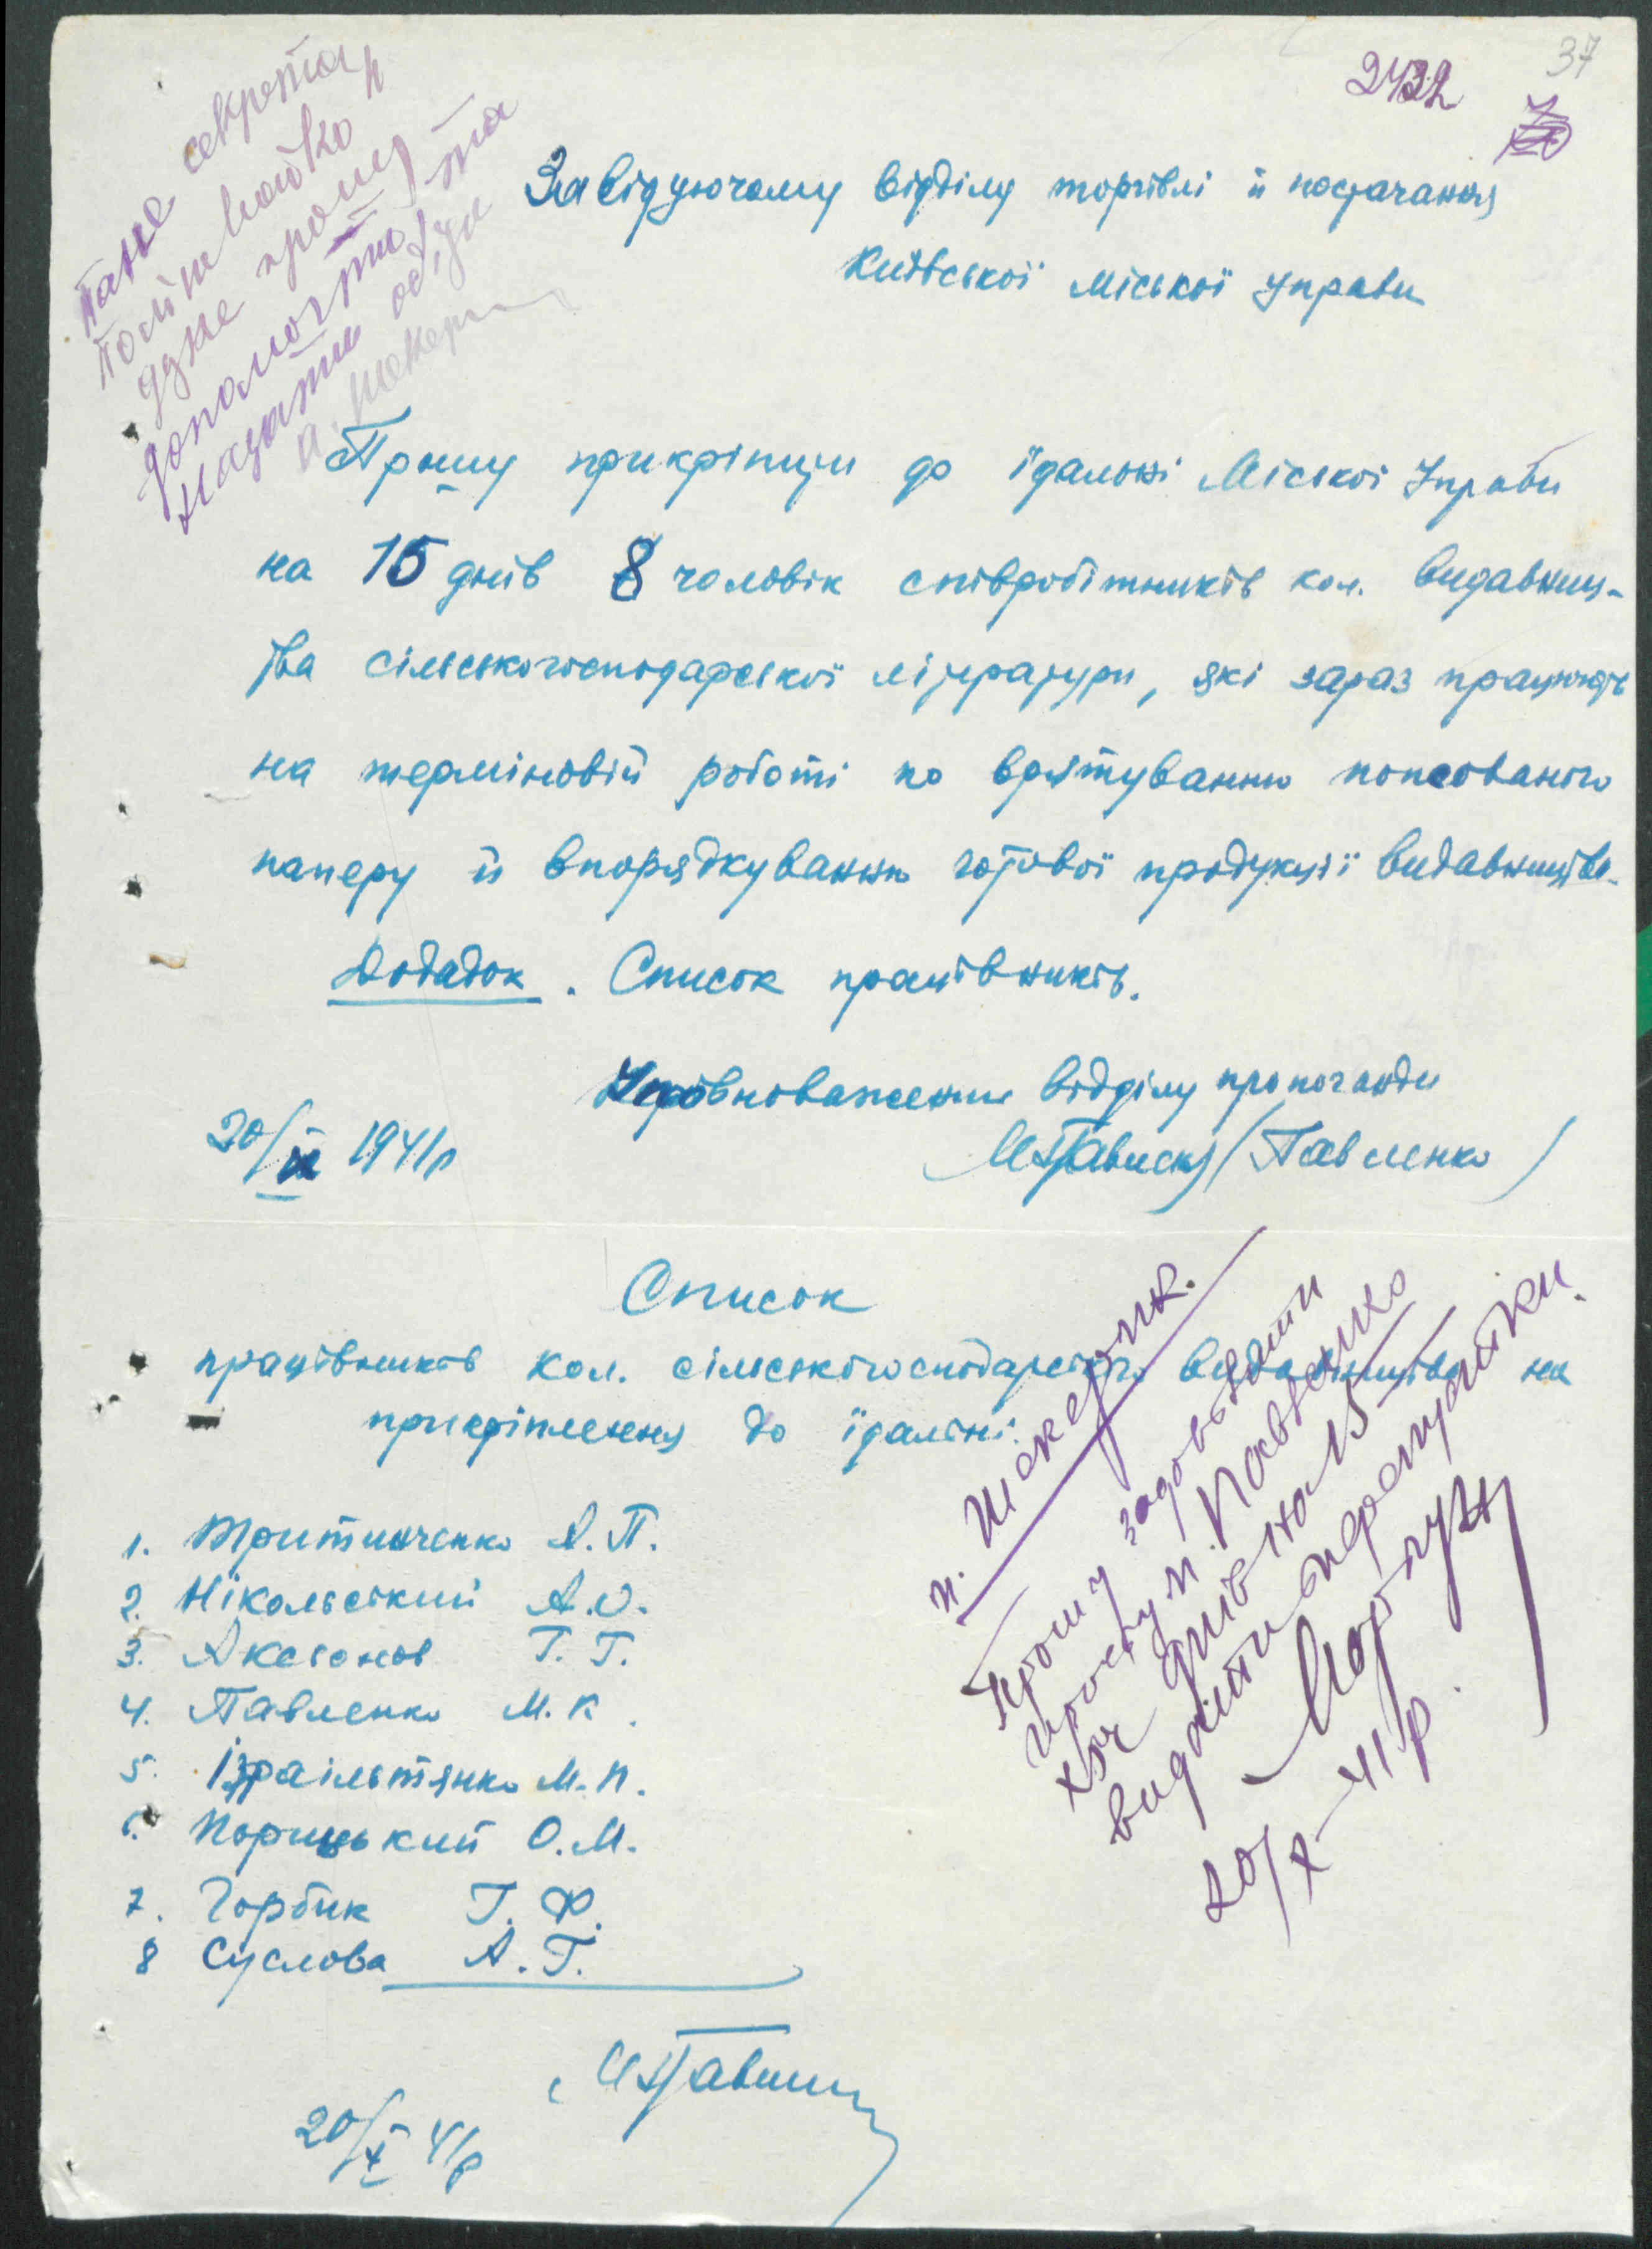 37
2432
Пане секретар
дуже прошу
допомогти та
надати обіди
Завідуючому відділу торгівлі й постачання
Київської міської Управи
Прошу прикріпити до їдальні Міської Управи
на 15 днів 8 чоловік співробітників кол. видавниц-
тва сільськогосподарської літератури, які зараз працюють
на терміновій роботі по врятуванню попсованого
паперу й впорядкуванню готової продукції видавництва.
Додаток. Список працівників.
Уповноважений відділу пропаганди
20/IX 1941р МПавленко /Павленко/
Список
працівників кол. сільськогосподарського видавництва на
прикріплення до їдальні.
1. Тритинченко А.П.
2. Нікольський А.О.
3. Аксьонов Г.Г.
4. Павленко М.К.
5. Ізраільтянко М.П.
6. Порицький О.М.
7. Горбик Г.Ф.
8 Суслова А.Г.
МПавленко
20/X 41р
п. Шекерик.
Прошу задовольнити
просьбу п. Павленко
хоч днів на 15
видати перепустки.
Моргун
20/X-41р.